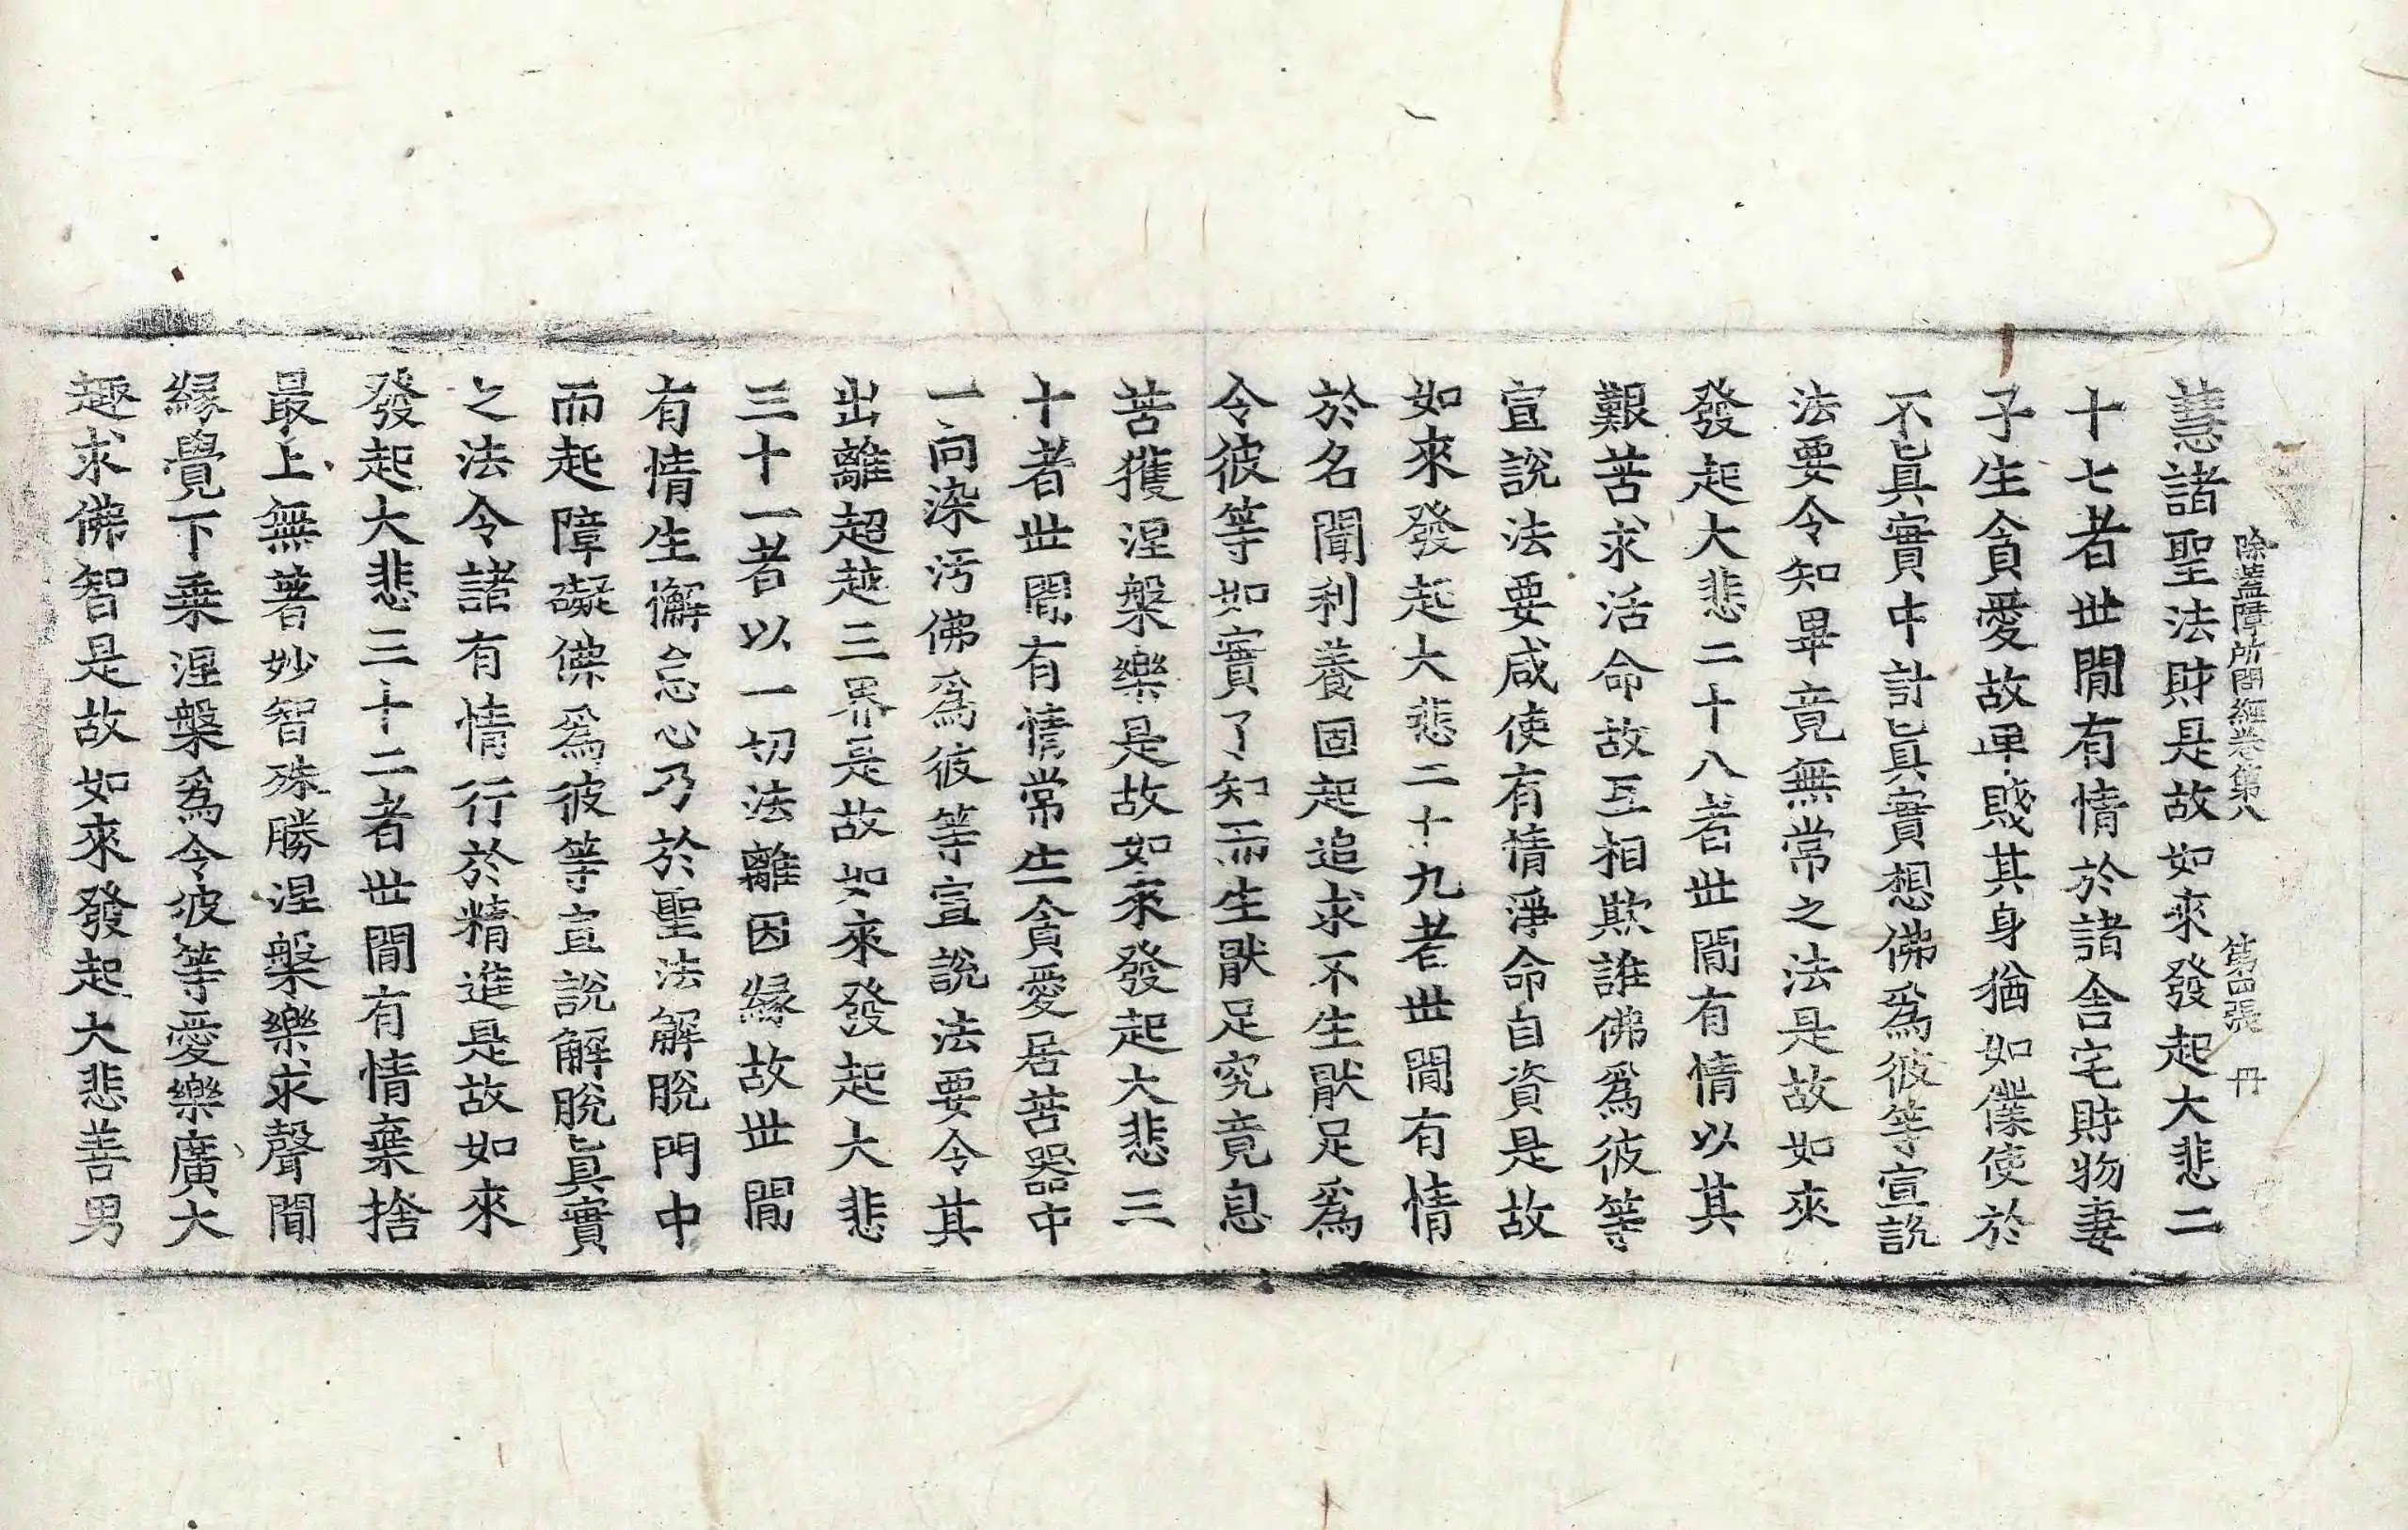 除蓋障所問經卷第八　第四張　冊
慧諸聖法財是故如來發起大悲二
十七者世間有情於諸舍宅財物妻
子生貪愛故卑賤其身猶如僕使於
不眞實中計眞實想佛爲彼等宣說
法要令知畢竟無常之法是故如來
發起大悲二十八者世間有情以其
艱苦求活命故互相欺誰佛爲彼等
宣說法要咸使有情淨命自資是故
如來發起大悲二十九者世間有情
於名聞利養固起追求不生猒足爲
令彼等如實了知而生猒足究竟息
苦獲涅槃樂是故如來發起大悲三
十者世間有情常生貪愛居苦器中
一向染汚佛爲彼等宣說法要令其
出離超越三界是故如來發起大悲
三十一者以一切法離因緣故世間
有情生懈怠心乃於聖法解脫門中
而起障礙佛爲彼等宣說解脫眞實
之法令諸有情行於精進是故如來
發起大悲三十二者世間有情棄捨
最上無著妙智殊勝涅槃樂求聲聞
緣覺下乘涅槃爲令彼等愛樂廣大
趣求佛智是故如來發起大悲善男